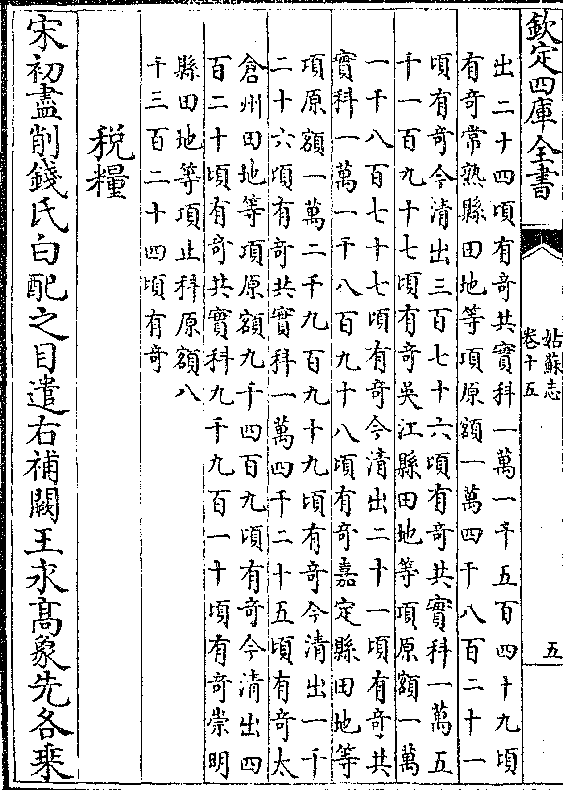 欽定四庫全書
姑蘇志
卷十五
五
出二十四頃有奇共實科一萬一千五百四十九頃
有奇常熟縣田地等項原額一萬四千八百二十一
頃有奇今清出三百七十六頃有奇共實科一萬五
千一百九十七頃有奇吳江縣田地等項原額一萬
一千八百七十七頃有奇今清出二十一頃有奇共
實科一萬一千八百九十八頃有奇嘉定縣田地等
項原額一萬二千九百九十九頃有奇今清出一千
二十六頃有奇共實科一萬四千二十五頃有奇太
倉州田地等項原額九千四百九頃有奇今清出四
百二十頃有奇共實科九千九百一十頃有奇崇明
縣田地等項止科原額八
千三百二十四頃有奇
稅糧
宋初盡削錢氏白配之目遣右補闕王永高象先各乗